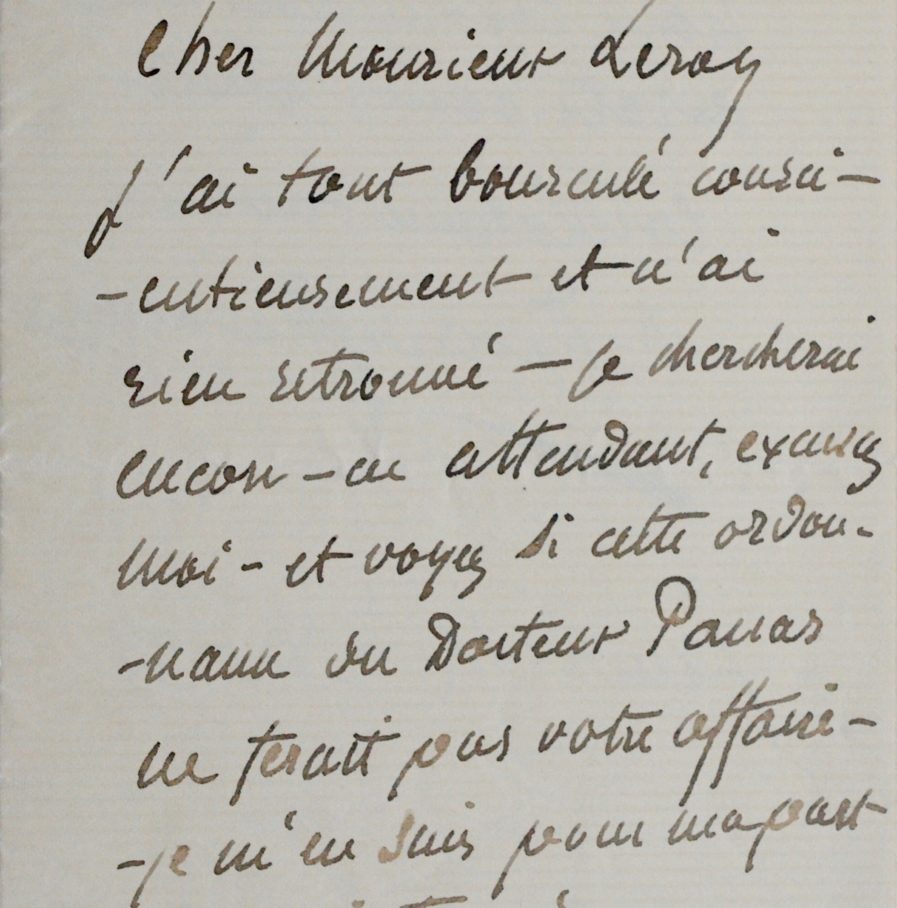 Cher Monsieur Leroy
J'ai tout bousculé consci-
-entieusement et n'ai
rien retrouvé – je chercherai
encore – en attendant, excusez
moi – et voyez si cette ordon-
-nance du Docteur Panas
ne ferait pas votre affaire –
– je m'en suis pour ma part